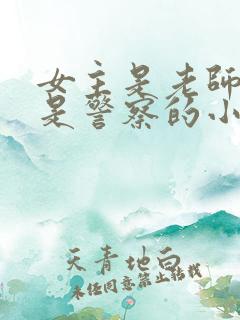 女主是老師
是警察的小
天青地白
未经同意禁止转载